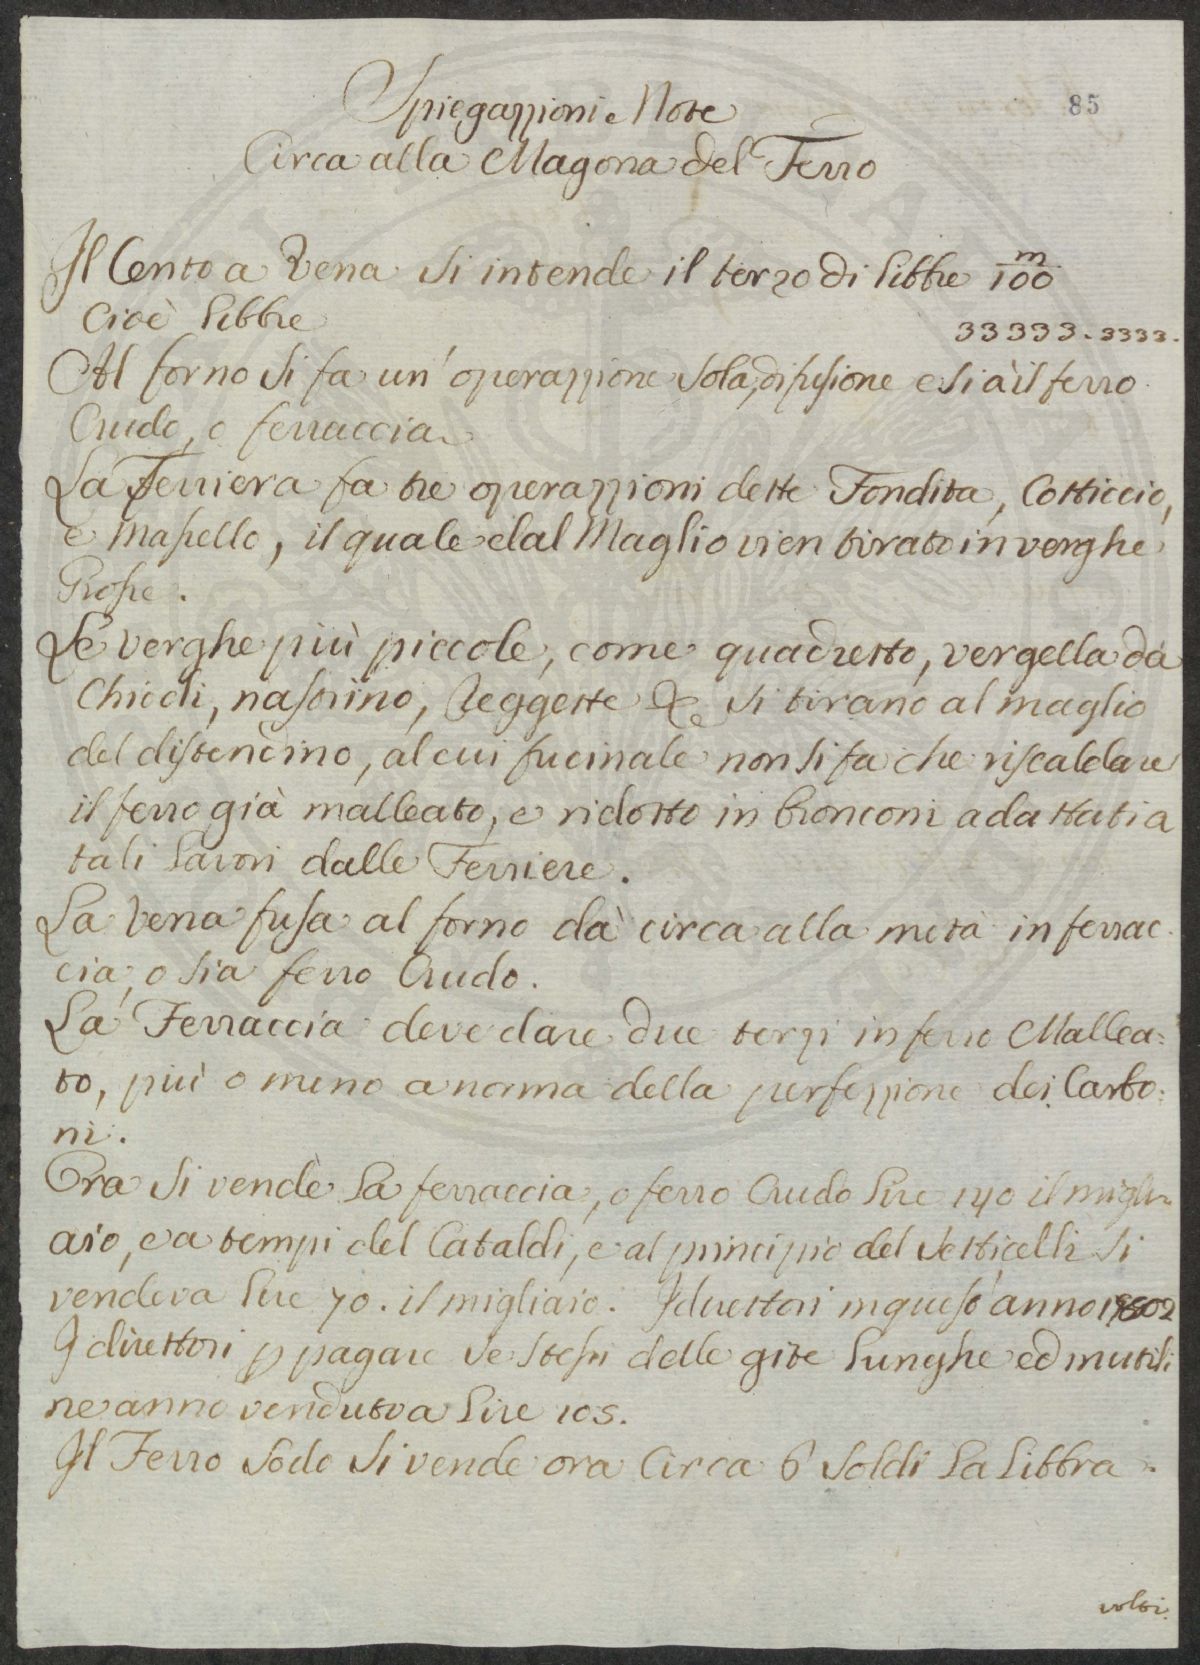 85
Spiegazzioni e Note
Circa alla Magona del Ferro
Il Cento a Vena si intende il terzo di libbre 100 m
cioè libbre 33333.3333.
Al forno si fa un' operazzione sola, di fusione e si à il ferro
Crudo, o ferraccia
La Ferriera fa tre operazzioni dette Fondita, Cotticcio,
e Massello, il quale dal Maglio vien tirato in verghe
Grosse.
Le verghe più piccole, come quadretto, vergella da
Chiodi, nastrino, Reggette &c si tirano al maglio
del distendino, al cui fucinale non si fa che riscaldare
il ferro già malleato, e ridotto in bronconi adattati a
tali lavori dalle Ferriere.
La Vena fusa al forno dà circa alla metà in ferrac-
cia, o sia ferro Crudo.
La Ferraccia deve dare due terzi in ferro Mallea=
to, più o meno a norma della perfezzione dei Carbo=
ni.
Ora si vende la ferraccia, o ferro Crudo lire 140 il migli-
aio, e a tempi del Cataldi, e al principio del Setticelli si
vendeva lire 70. il migliaio. I direttori in quest' anno 1802
I direttori p pagare se stessi delle gite lunghe ed inutili
ne anno venduta a lire 105.
Il Ferro sodo si vende ora Circa 6 soldi la libbra.
volti.